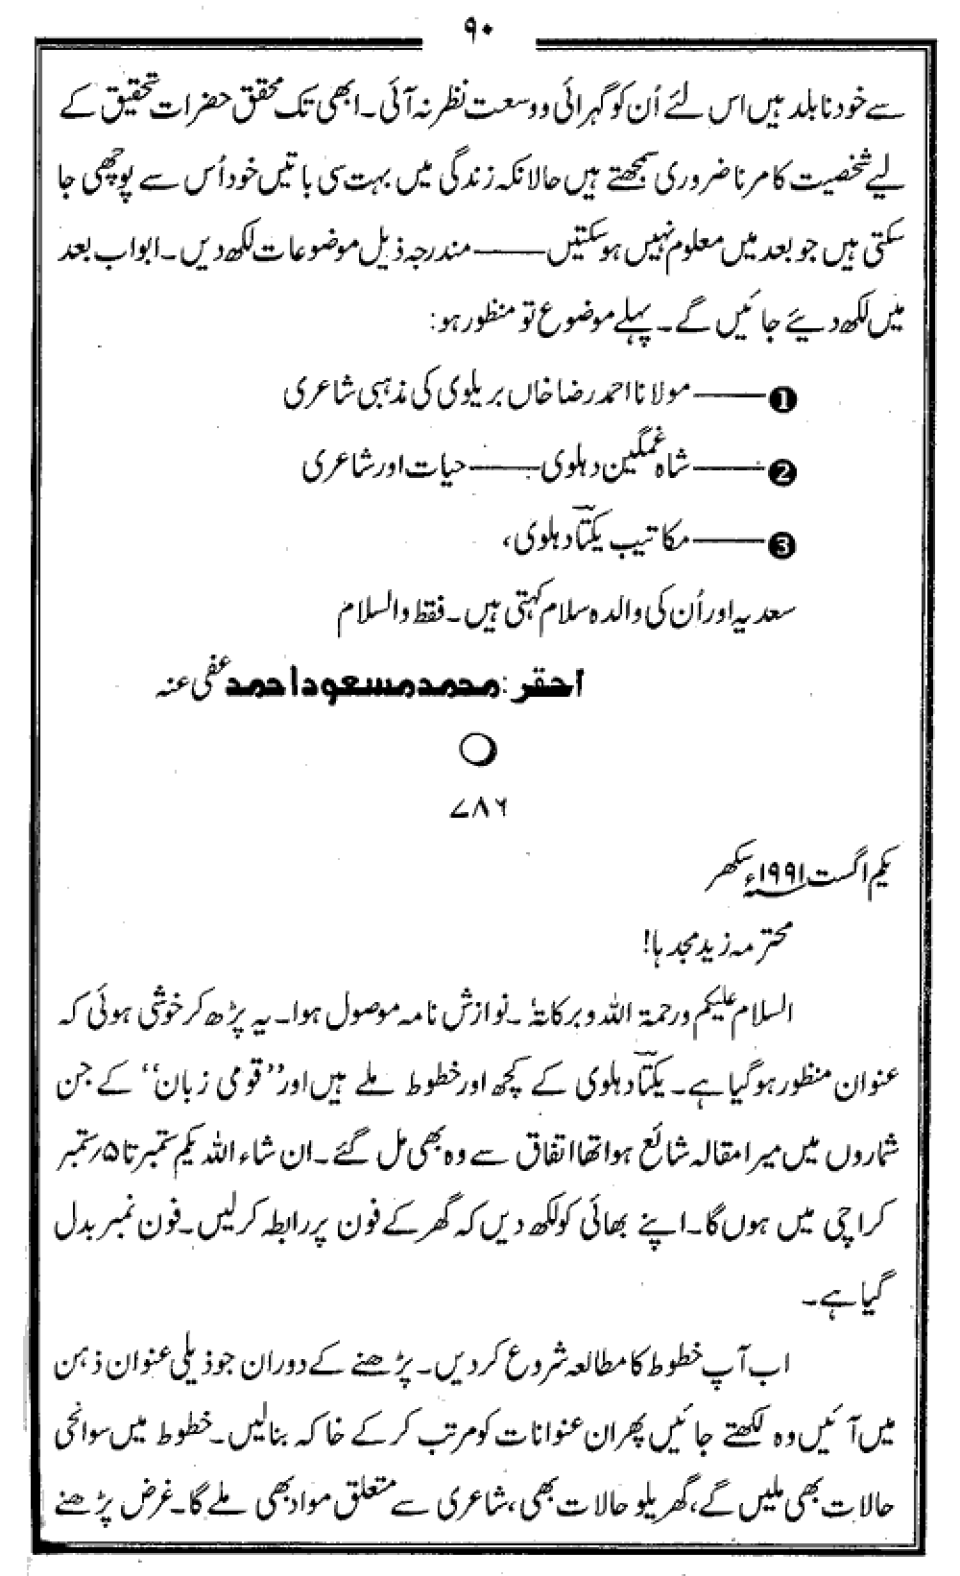 ۹۰
سے خود نابلد ہیں اس لئے اُن کو گہرائی و وسعت نظر نہ آئی۔ ابھی تک محقق حضرات تحقیق کے
لیے شخصیت کا مرنا ضروری سمجھتے ہیں حالانکہ زندگی میں بہت سی باتیں خود اُس سے پوچھی جا
سکتی ہیں جو بعد میں معلوم نہیں ہو سکتیں —— مندرجہ ذیل موضوعات لکھ دیں۔ ابواب بعد
میں لکھ دیئے جائیں گے۔ پہلے موضوع تو منظور ہو:
❶ —— مولانا احمد رضا خاں بریلوی کی مذہبی شاعری
❷ —— شاہ غمگین دہلوی —— حیات اور شاعری
❸ —— مکاتیب یکتاؔ دہلوی،
سعدیہ اور اُن کی والدہ سلام کہتی ہیں۔ فقط والسلام
احقر: محمد مسعود احمد عفی عنہ
۷۸۶
یکم اگست ۱۹۹۱ء سکھر
محترمہ زید مجدہا!
السلام علیکم ورحمۃ اللہ وبرکاتہٗ۔ نوازش نامہ موصول ہوا۔ یہ پڑھ کر خوشی ہوئی کہ
عنوان منظور ہو گیا ہے۔ یکتاؔ دہلوی کے کچھ اور خطوط ملے ہیں اور ’’قومی زبان‘‘ کے جن
شماروں میں میرا مقالہ شائع ہوا تھا اتفاق سے وہ بھی مل گئے۔ ان شاء اللہ یکم ستمبر تا ۵؍ستمبر
کراچی میں ہوں گا۔ اپنے بھائی کو لکھ دیں کہ گھر کے فون پر رابطہ کر لیں۔ فون نمبر بدل
گیا ہے۔
اب آپ خطوط کا مطالعہ شروع کر دیں۔ پڑھنے کے دوران جو ذیلی عنوان ذہن
میں آئیں وہ لکھتے جائیں پھر ان عنوانات کو مرتب کر کے خاکہ بنالیں۔ خطوط میں سوانحی
حالات بھی ملیں گے، گھریلو حالات بھی، شاعری سے متعلق مواد بھی ملے گا۔ غرض پڑھنے